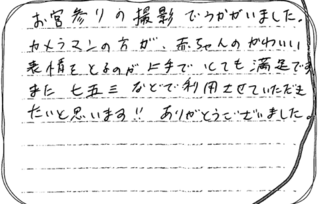 お宮参りの撮影でうかがいました。
カメラマンの方が、赤ちゃんのかわいい
表情をとるのが上手でとても満足です
また七五三などで利用させていただき
たいと思います!! ありがとうございました。